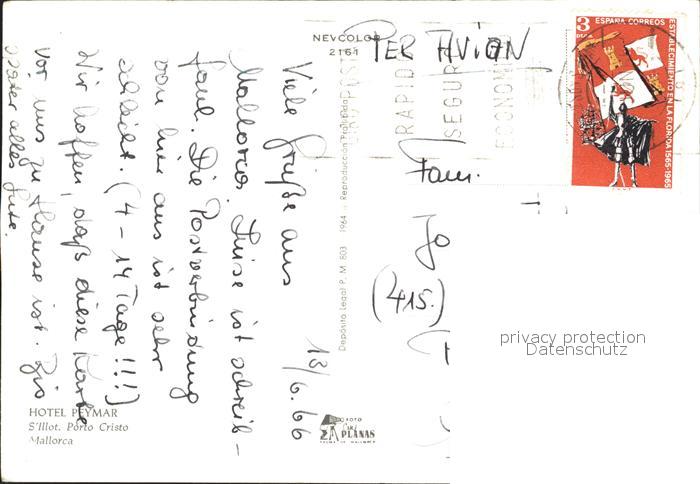 NEVCOLOR
2161
PER AVION
3
PTAS
ESPAÑA CORREOS
ESTABLECIMIENTO EN LA FLORIDA 1565-1965
RAPIDO
SEGURO
ECONOMICO
Viele Grüße aus
Mallorca. Luise ist schreib-
faul. Die Postverbindung
von hier aus ist sehr
schlecht. (4 - 14 Tage!!!)
Wir hoffen, daß diese Karte
vor uns zu Hause ist. Bis
alles Gute.
18/6.66
Depósito Legal P. M. 803 1964 - Reproducción Prohibida
Fam.
Jo
(415.)
privacy protection
Datenschutz
HOTEL PEYMAR
S'Illot. Porto Cristo
Mallorca
FOTO
PLANAS
PALMA DE MALLORCA